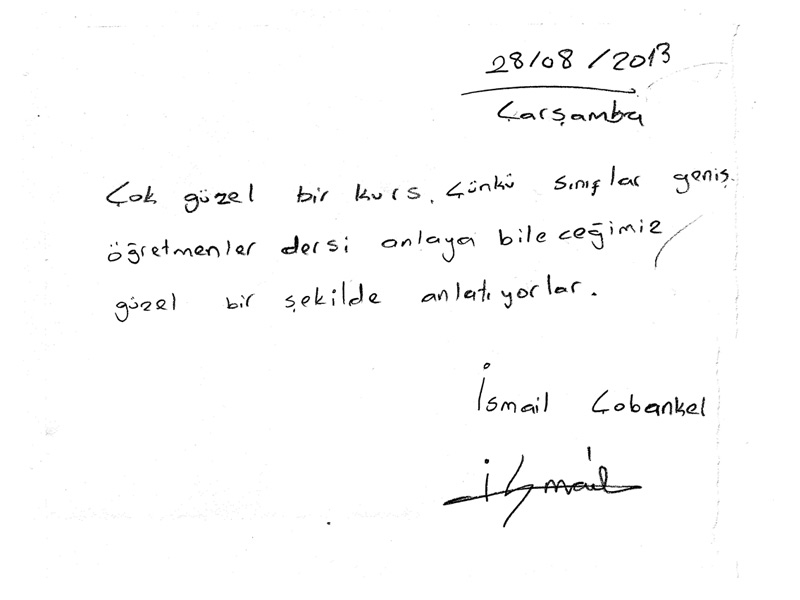 28/08/2013
Çarşamba
Çok güzel bir kurs. Çünkü sınıflar geniş.
öğretmenler dersi anlaya bileceğimiz
güzel bir şekilde anlatıyorlar.
İsmail Çobankel
ismail